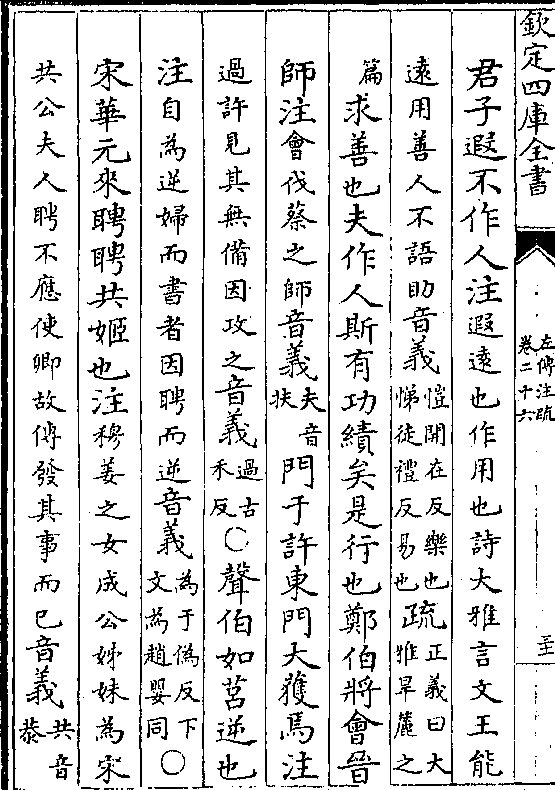 欽定四庫全書
左傳注疏
卷二十六
至
君子遐不作人注遐遠也作用也詩大雅言文王能
遠用善人不語助音義愷開在反樂也悌徒禮反易也疏正義曰大雅旱麓之
篇求善也夫作人斯有功績矣是行也鄭伯將會晉
師注會伐蔡之師音義夫音扶門于許東門大獲焉注
過許見其無備因攻之音義過古禾反○聲伯如莒逆也
注自為逆婦而書者因聘而逆音義為于偽反下文為趙嬰同○
宋華元來聘聘共姬也注穆姜之女成公姊妹為宋
共公夫人聘不應使卿故傳發其事而已音義共音恭